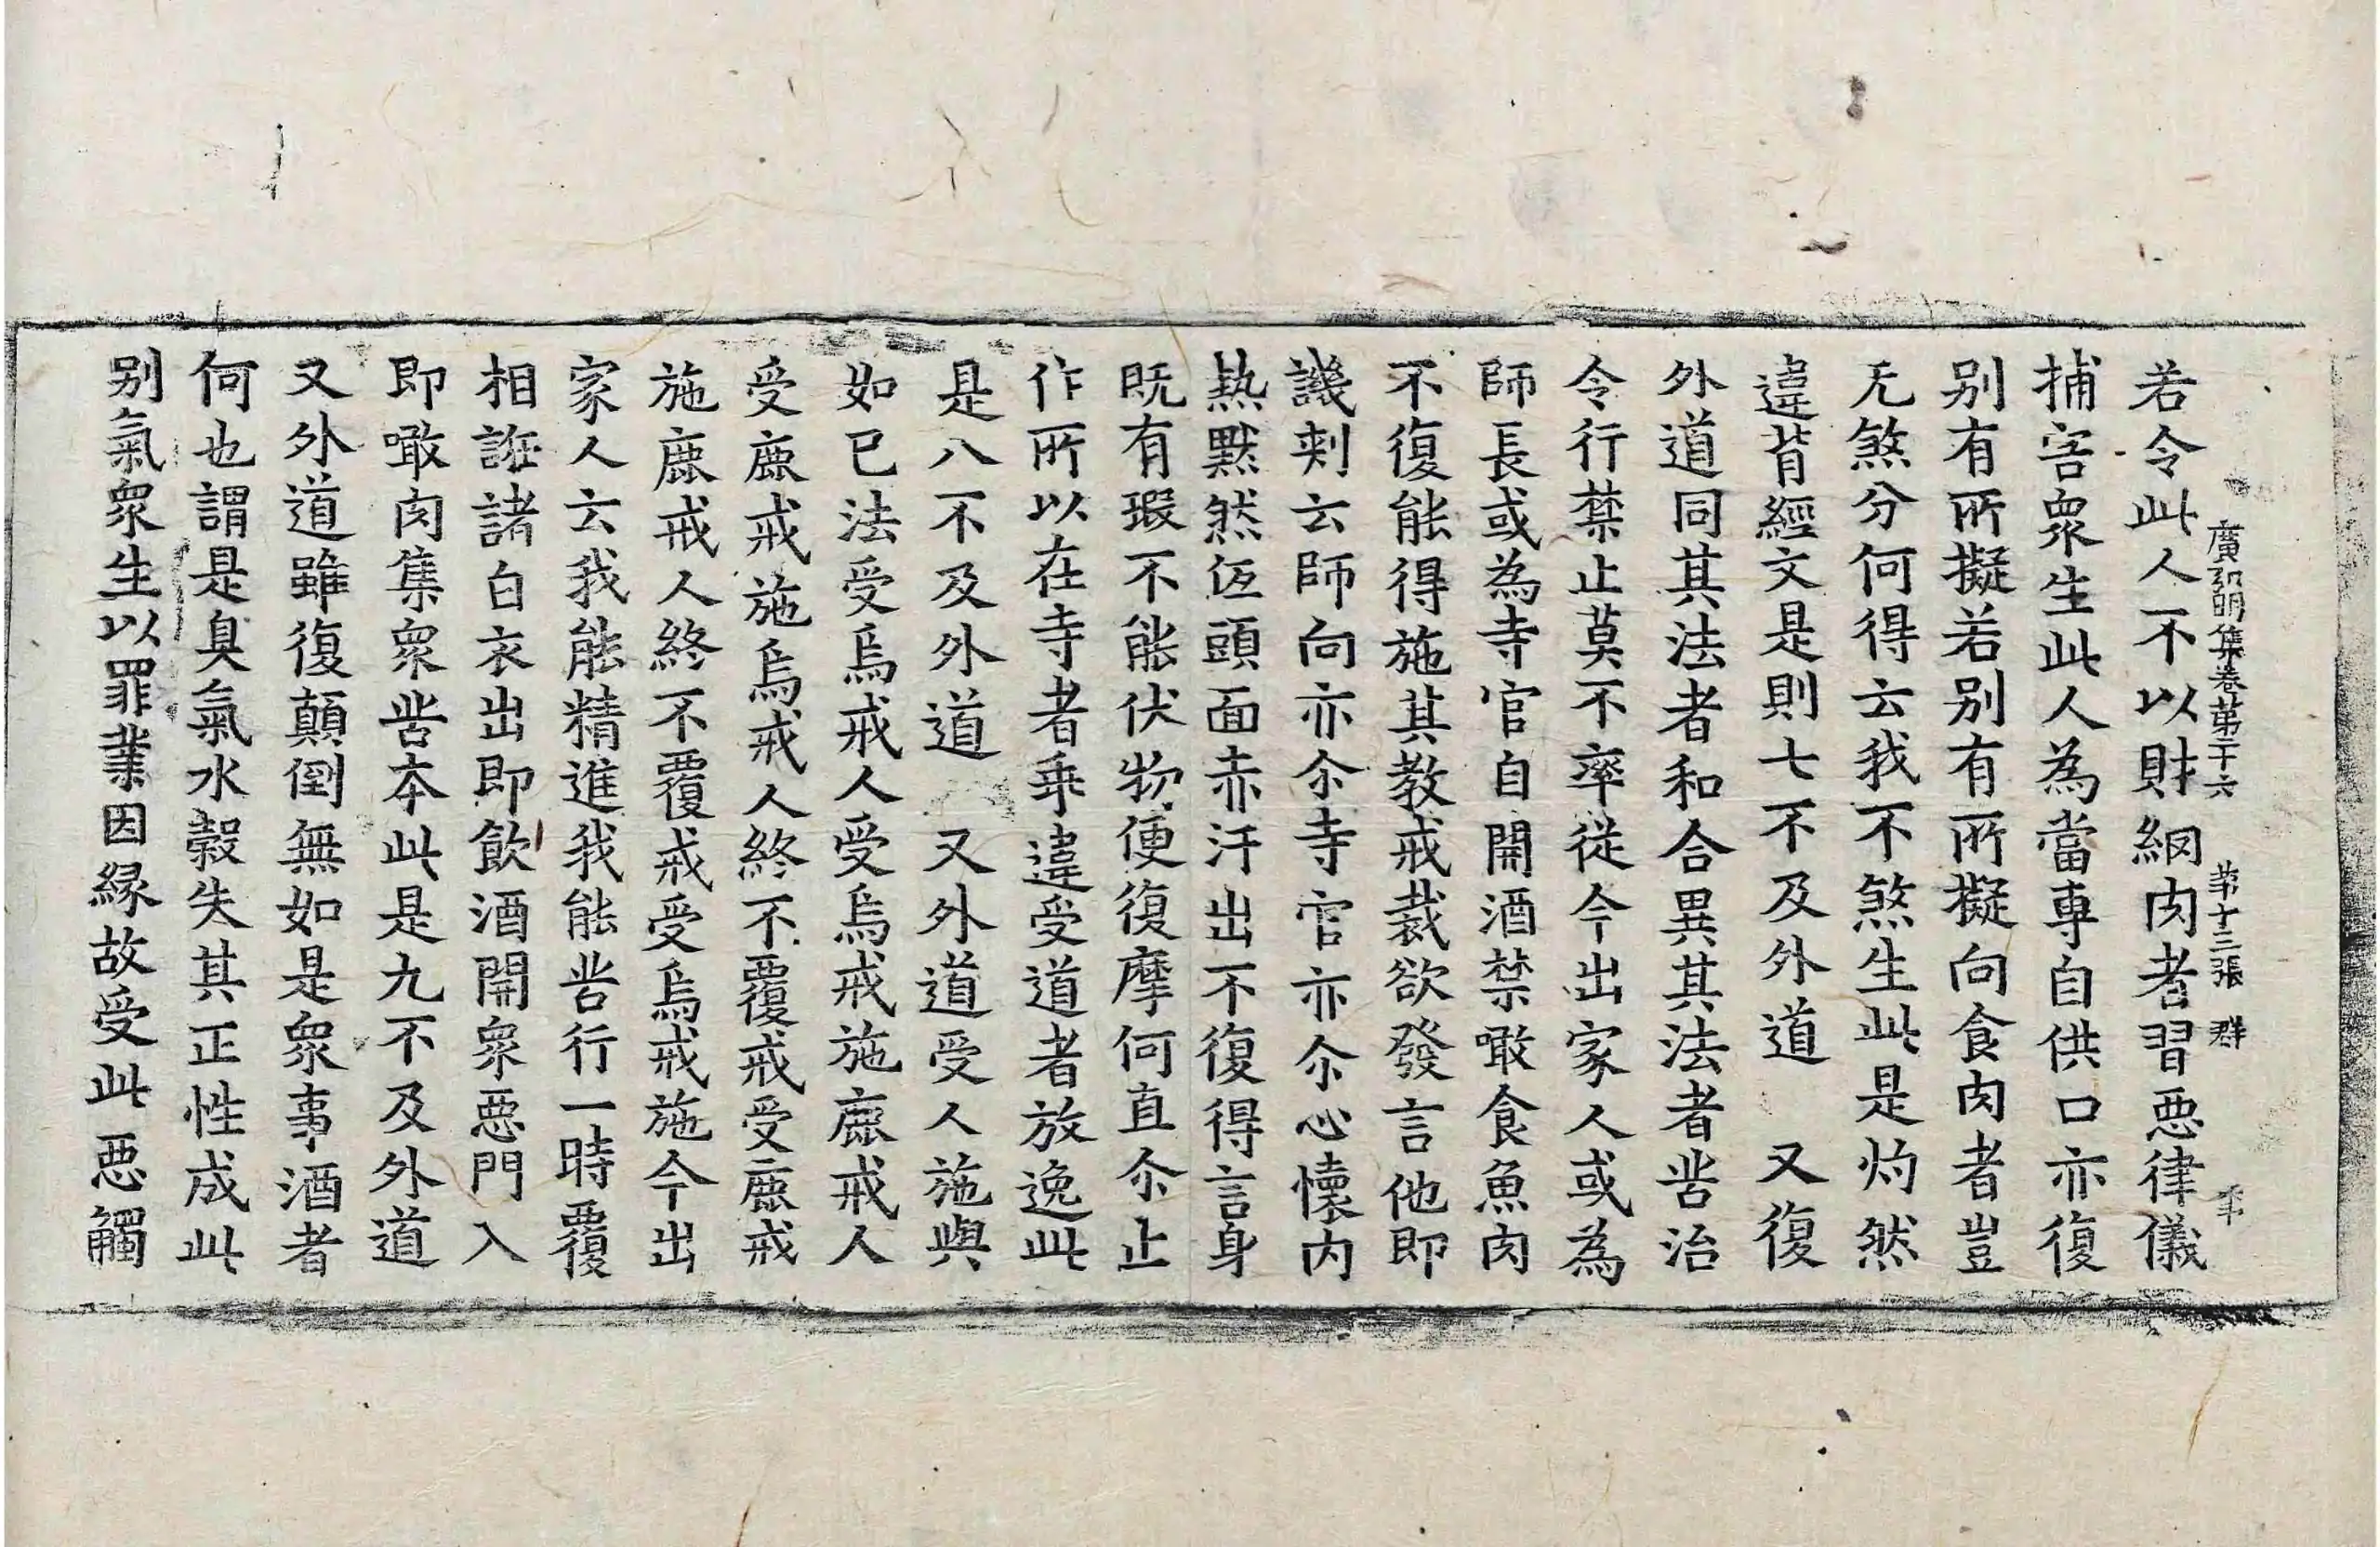 廣弘明集卷第二十六　第十三張　群
若令此人不以財網肉者習惡律儀
捕害衆生此人為當專自供口亦復
别有所擬若别有所擬向食肉者豈
无煞分何得云我不煞生此是灼然
違背經文是則七不及外道　又復
外道同其法者和合異其法者呰治
令行禁止莫不率從今出家人或為
師長或為寺官自開酒禁噉食魚肉
不復能得施其教戒裁欲發言他即
譏刺云師向亦尒寺官亦尒心懷内
熱默然仾頭面赤汗出不復得言身
既有瑕不能伏物便復摩何直尒止
作所以在寺者乖違受道者放逸此
是八不及外道　又外道受人施與
如已法受烏戒人受烏戒施鹿戒人
受鹿戒施烏戒人終不覆戒受鹿戒
施鹿戒人終不覆戒受烏戒施今出
家人云我能精進我能呰行一時覆
相誑諸白衣出即飲酒開衆惡門入
即噉肉集衆呰本此是九不及外道
又外道雖復顛倒無如是衆事酒者
何也謂是臭氣水穀失其正性成此
别氣衆生以罪業因縁故受此惡觸